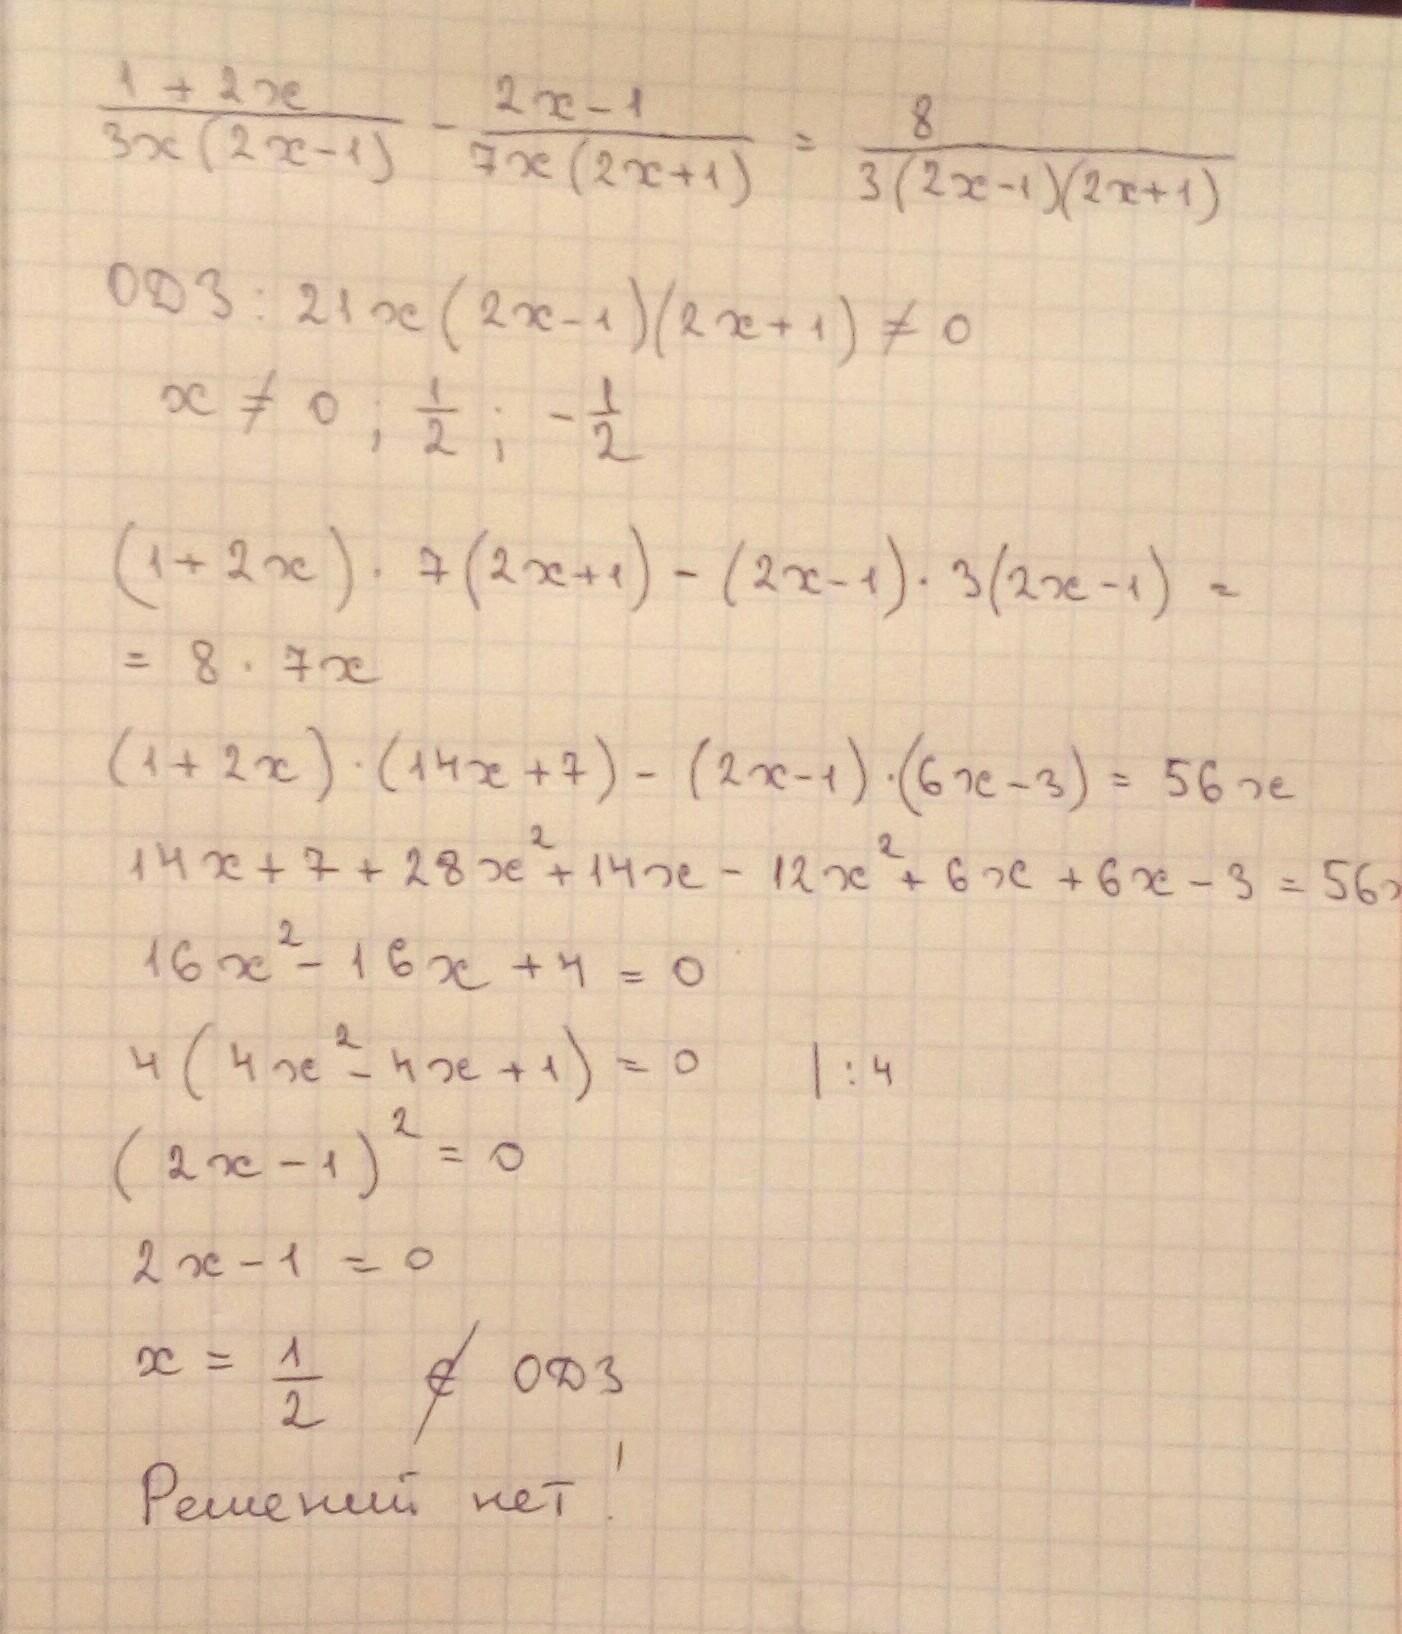 (1 + 2x)/(3x(2x-1)) - (2x-1)/(7x(2x+1)) = 8/(3(2x-1)(2x+1))
ОДЗ: 21x(2x-1)(2x+1) ≠ 0
x ≠ 0; 1/2; -1/2
(1+2x)·7(2x+1)-(2x-1)·3(2x-1) =
= 8·7x
(1+2x)·(14x+7)-(2x-1)·(6x-3) = 56x
14x+7+28x²+14x-12x²+6x+6x-3 = 56x
16x²-16x+4 = 0
4(4x²-4x+1) = 0 |:4
(2x-1)² = 0
2x-1 = 0
x = 1/2 ∉ ОДЗ
Решений нет!